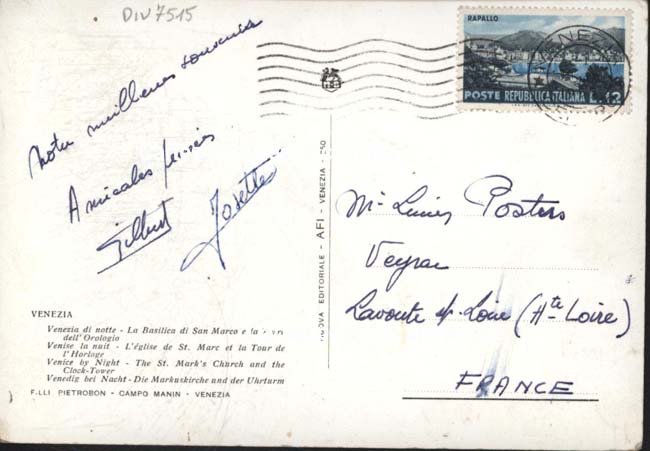 DIV7515
Notre meilleur souvenir
Amicales pensées
Gilbert Josette
VENEZIA
Venezia di notte - La Basilica di San Marco e la
dell'Orologio
Venise la nuit - L'église de St. Marc et la Tour de
l'Horloge
Venice by Night - The St. Mark's Church and the
Clock-Tower
Venedig bei Nacht - Die Markuskirche und der Uhrturm
F.LLI PIETROBON - CAMPO MANIN - VENEZIA
NUOVA EDITORIALE - AFI - VENEZIA
RAPALLO
POSTE REPUBBLICA ITALIANA L.12
Mr Louis
Veyrac
Lavoute s/ Loire (Hte Loire)
FRANCE